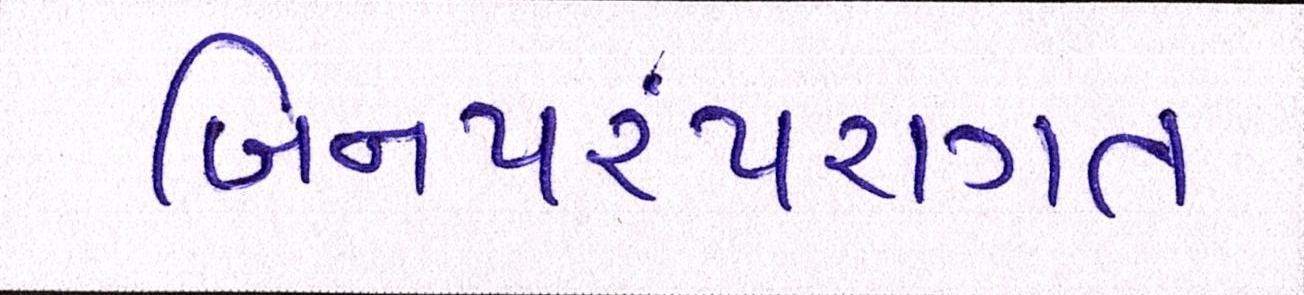 બિનપરંપરાગત